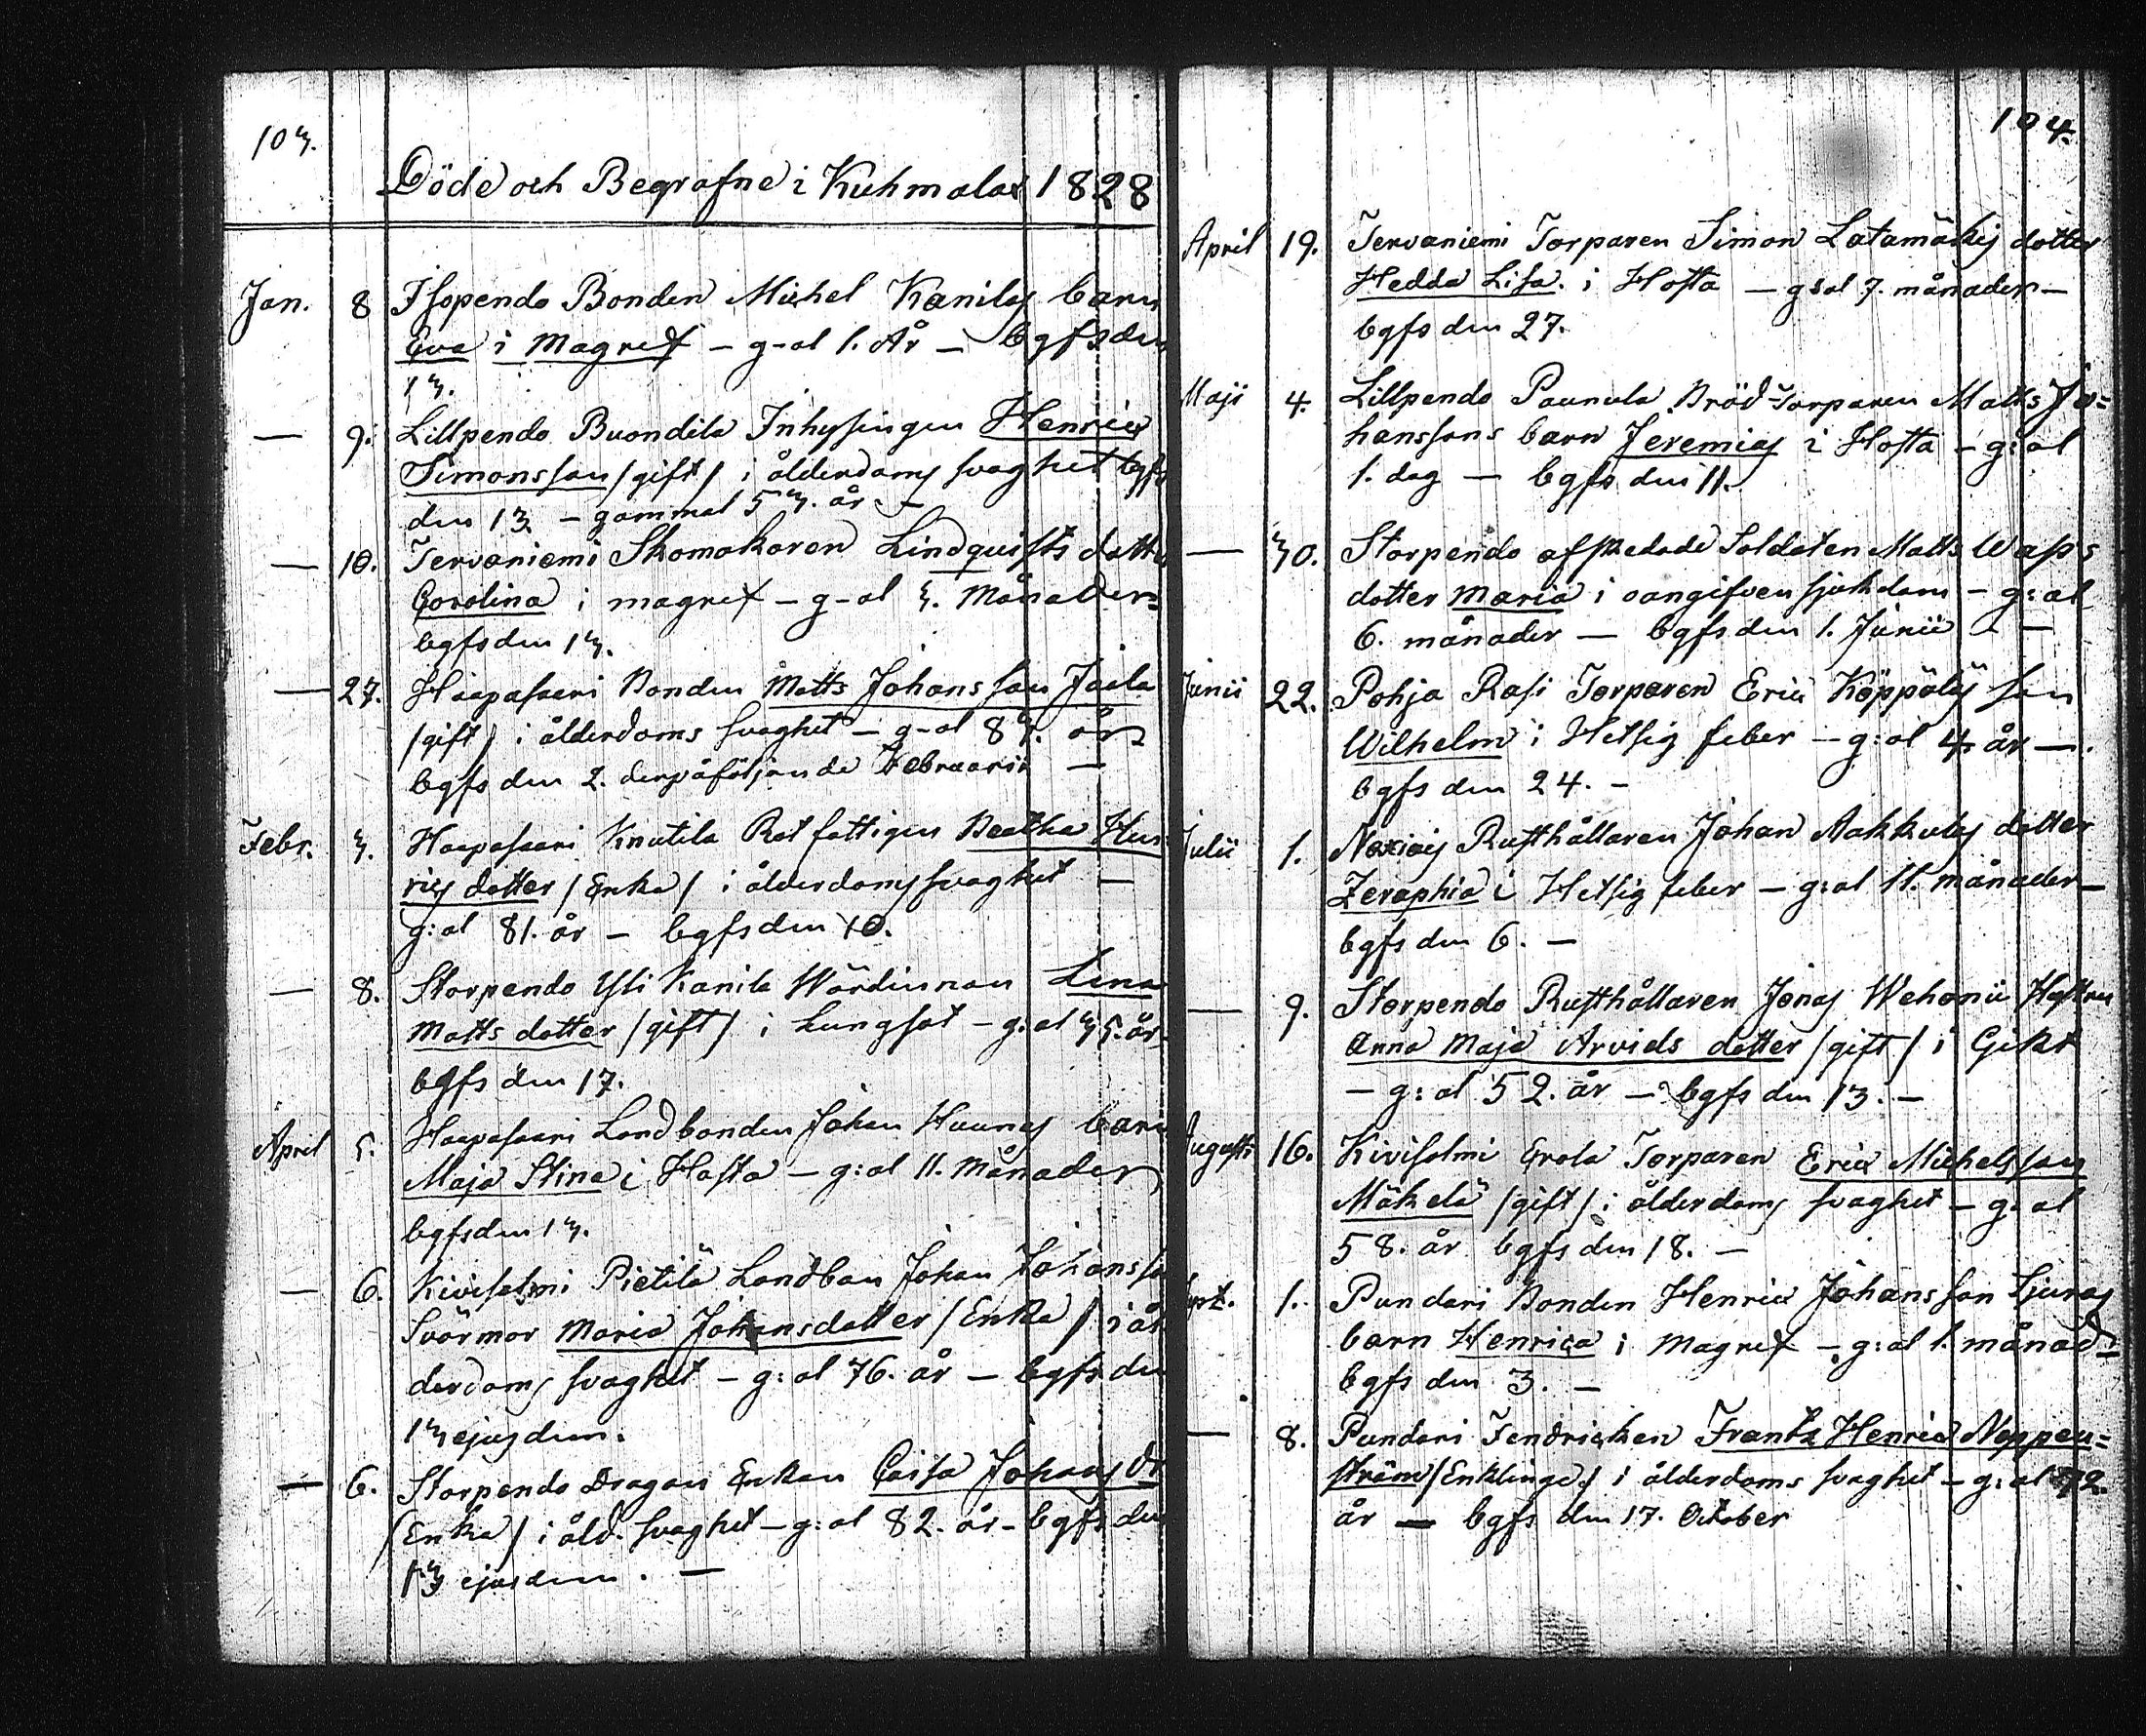 103.
Döde och Begrafne i Kuhmalax 1828
Jan. 8 Isopendo Bonden Michel Kanilas barn
Eva i Magref - g-al 1. År - bgfs den
13.
— 9. Lillpendo Buondila Inhysingen Henric
Simonsson /gift/ i ålderdoms svaghet bgfs
den 13. - gammal 53. år -
— 10. Tervaniemi Skomakaren Lindquists dotter
Carolina i magref - g-al 3. Månader
bgfs den 13.
— 27. Haapasaari Bonden Matts Johansson Jaala
/gift/ i ålderdoms svaghet - g-al 83. år
bgfs den 2. derpåföljande Februarii —
Febr. 3. Haapasaari Knutila Rotfattigen Beatha Hen
rics dotter /Enka/ i ålderdoms svaghet —
g:al 81. år - bgfs den 10.
— 8. Storpendo Yli Kanila Wärdinnan Lena
Matts dotter /gift/ i Lungsot - g:al 35. år -
bgfs den 17.
April 5. Haapasaari Landbonden Johan Hunnas barn
Maja Stina i Hosta - g:al 11. Månader
bgfs den 13.
— 6. Kivisalmi Pietilä Landbon Johan Johansso
Svärmor Maria Johansdotter /Enka/ i ål
derdoms svaghet - g:al 76. år - bgfs den
13 ejusdem.
— 6. Storpendo Dragon Enkan Caisa Johans dr
/Enka/ i åld. svaghet - g:al 82. år - bgfs den
13 ejusdem. —
104.
April 19. Tervaniemi Torparen Simon Latamäkis dotter
Hedda Lisa i Hosta — g:al 7. månader —
bgfs den 27.
Maji 4. Lillpendo Paunula Bröd-Torparen Matts Jo=
hanssons barn Jeremias i Hosta - g:al
1. dag — bgfs den 11.
— 30. Storpendo afskedade Soldaten Matts Wass
dotter Maria i oangifven sjukdom - g:al
6. månader — bgfs den 1. Junii —
Junii 22. Pohja Rasi Torparen Eric Köppäläs son
Wilhelm i Hetsig feber - g:al 4. år —
bgfs den 24. -
Julii 1. Rusthållaren Johan Aakkulas dotter
Zeraphia i Hetsig feber - g:al 11. månader —
bgfs den 6. —
— 9. Storpendo Rusthållaren Jonas Hustru
Anna Maja Arvids dotter /gift/ i Gikt
- g:al 52. år - bgfs den 13. —
Augusti 16. Kivisalmi Erola Torparen Eric Michelsson
Mäkelä /gift/ i ålderdoms svaghet - g:al
58. år bgfs den 18. —
Sept. 1. Pundari Bonden Henric Johansson
barn Henrica i Magref - g:al 1. månad -
bgfs den 3. —
— 8. Pundari Fendricken Frantz Henric Noppen=
ström /Enklinge/ i ålderdoms svaghet - g:al 72.
år — bgfs den 17. October